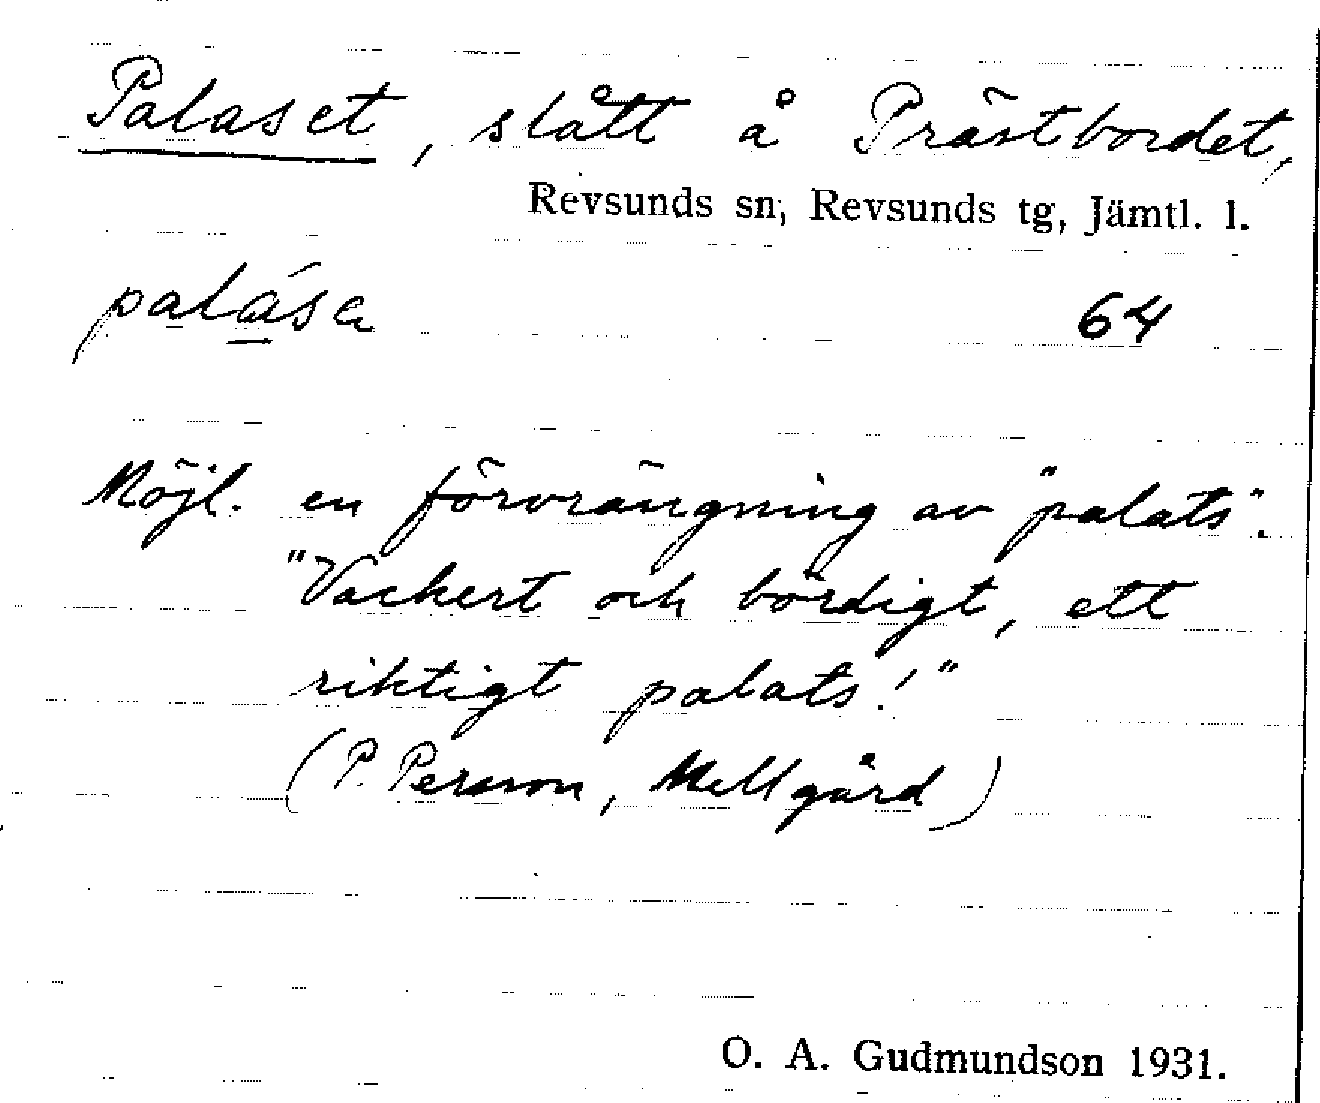 Palaset, slått å Prästbordet,
Revsunds sn, Revsunds tg, Jämtl. l.
palása
64
Möjl. en förvrängning av "palats".
"Vackert och bördigt, ett
riktigt palats!"
(P. Persson, Mellgård)
O. A. Gudmundson 1931.